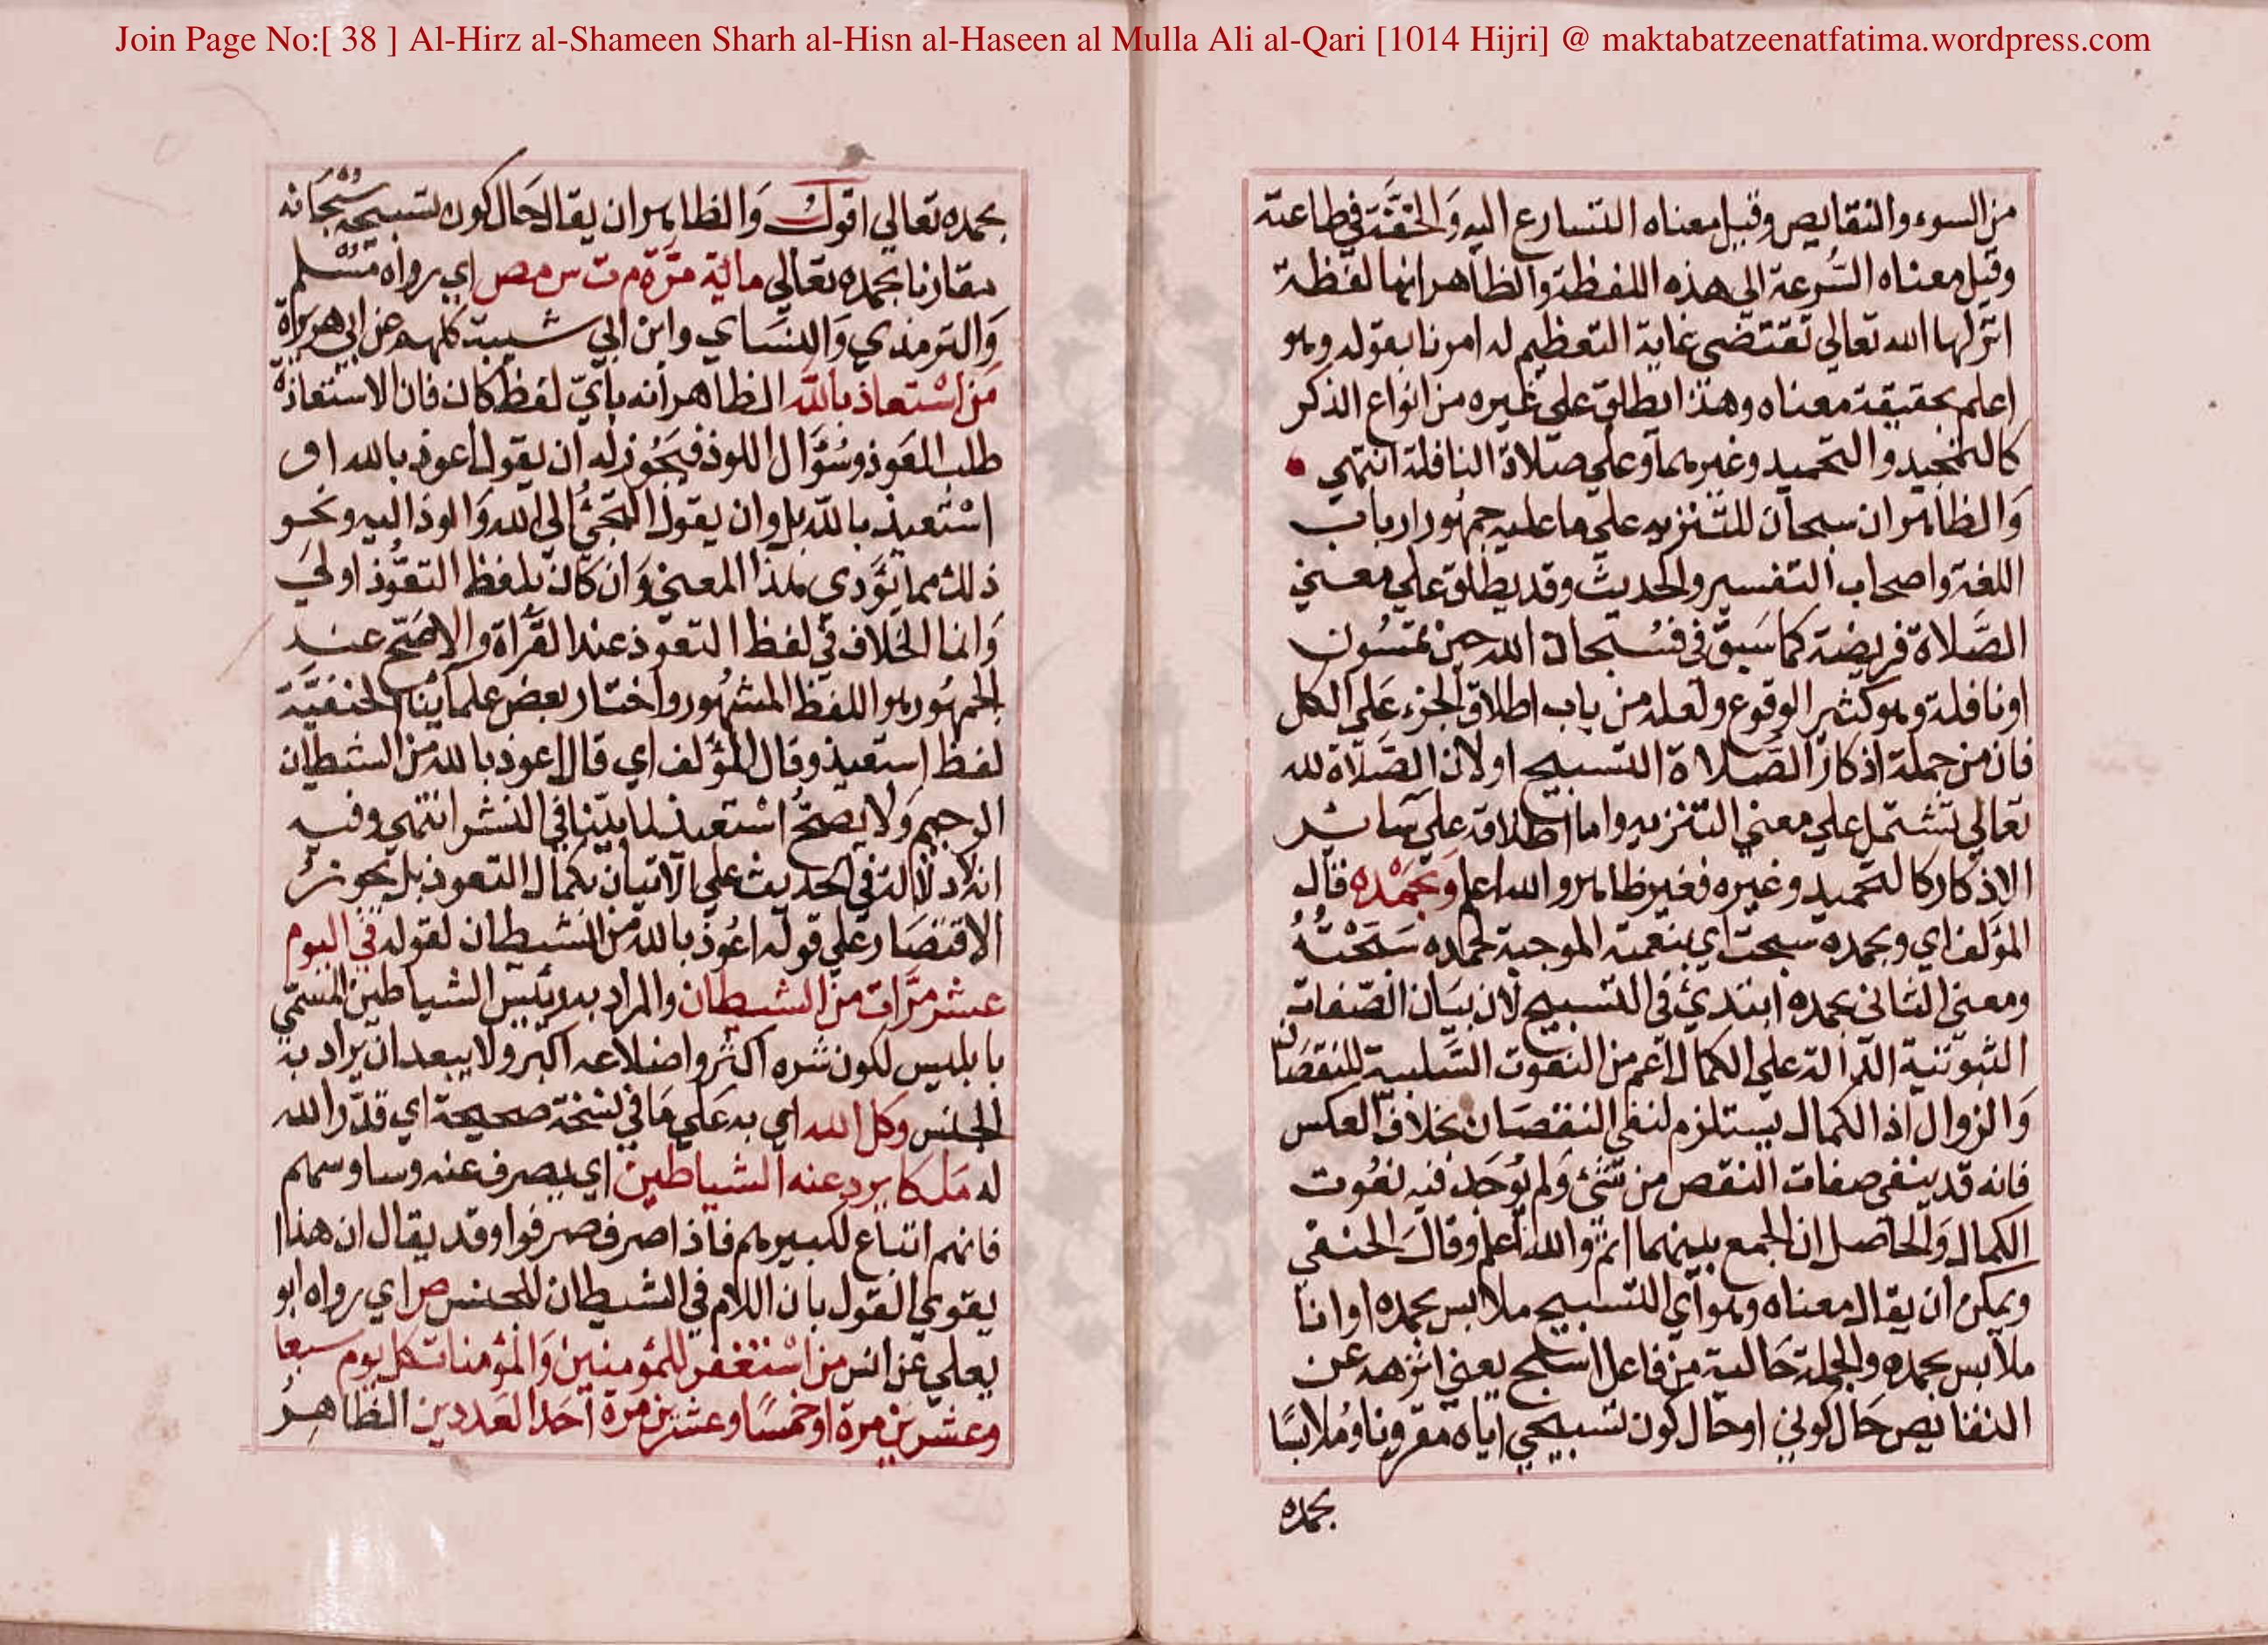 Join Page No:[ 38 ] Al-Hirz al-Shameen Sharh al-Hisn al-Haseen al Mulla Ali al-Qari [1014 Hijri] @ maktabatzeenatfatima.wordpress.com
من السوء والنقايص وقيل معناه التسارع اليه وَالخفَّة في طاعته
وقيل معناه السُّرعة الي هذه اللفظة والظاهر انها لفظة
انزلها الله تعالي تقتضي غاية التعظيم له امرنا بقوله وهو
اعلم بحقيقة معناه وهذا يطلق علي غيره من انواع الذكر
كالتمجيد والتحميد وغيرهما وعلي صلاة النافلة انتهي
وَالظاهر ان سبحان للتنزيه علي ما عليه جمهور ارباب
اللغة واصحاب التفسير والحديث وقد يطلق علي معني
الصَّلاة فريضة كما سَبق في فسُبحان الله حين تمسُون
او نافلة وهو كثير الوقوع ولعله من باب اطلاق الجزء عَلي الكل
فان من جملة اذكار الصَّلاة التسبيح او لان الصَّلاة لله
تعالي تشتمل علي معني التنزيه واما اطلاقه علي سَائر
الاذكار كالتحميد وغيره فغير ظاهر والله اعلم وَبحَمْده قال
المؤلف اي وبحمده سبحت اي بنعمته الموجبة لحمده سَبَّحْتُهُ
ومعني الثاني بحمده ابتدئ في التسبيح لان بيَان الصّفات
الثبوتية الدّالة علي الكمال اعم من النعوت السَّلبية للنقصَان
وَالزوال اذ الكمال يستلزم لنفي النقصَان بخلاف العكس
فانه قد ينفي صفات النقص من شئ وَلم يُوجَد فيه نعُوت
الكمال وَالحاصل ان الجمع بينهما اتمّ والله اعلم وقالَ الحنفي
ويمكن ان يقال معناه وهو اي التسبيح ملابس بحمده او انا
ملابس بحمده والجملة حَالية من فاعل اسبح يعني انزهه عن
النقايص حَال كوني او حال كون تسبيحي اياه مقرونا ومُلابسًا
بحمده
بحمده تعالي اقول وَالظاهر ان يقال حَال كون تسبيحه سُبْحَانه
مقارنا بحمده تعالي ماية مَرّة م ت س مص اي رواه مُسْلم
وَالترمذي وَالنسَاي وابن ابي شيبة كلهم عن ابي هريرة
مَن اسْتعاذ بالله الظاهر أنه بأيّ لفظ كان فان الاستعاذة
طلب العَوذ وسُؤَال اللوذ فيَجُوز له ان يقول اعوذ بالله او
اسْتعيذ بالله بل وان يقول التجئُ الي الله وَالوذ اليه ونحو
ذلك مما يؤَدي هذا المعني وَان كان بلفظ التعوُّذ اوليَ
وَانما الخلاف في لفظ التعوّذ عند القرَاة والاصَحّ عند
الجمهُور هو اللفظ المشهُور واختار بعض علماينا الحنفيَّة
لفظ استعيذ وقال المؤلف اي قال اعوذ بالله من الشيطان
الرجيم وَلا يصحّ اسْتعيذ لما بيّنا في النشر انتهي وفيه
انه لا دلالة في الحديث علي الاتيان بكمال التعوذ بل يجوزُ
الاقتصَار علي قوله اعُوذ بالله من الشيطان لقوله في اليوم
عشر مرَّات من الشيطان والمراد به رئيس الشياطين المسمّي
بابليس لكون شره اكثر واضلاعه اكبر ولا يبعد ان يراد به
الجنس وكل الله اي به عَلي مَا في نسخة صحيحة اي قدّر الله
له مَلكا يرد عنه الشياطين اي يصرف عنه وساوسهم
فانهم اتباع لكبيرهم فاذا صرف صرفوا وقد يقال ان هذا
يقوي القول بان اللام في الشيطان للجنس ص اي رواه ابو
يعلي عن انس من اسْتغفر للمؤمنين وَالمؤمنات كل يوم سبعا
وعشرين مرة او خمسًا وعشرين مرة أحَد العَددين الظاهِرُ